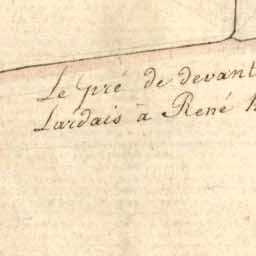 Le pré de devant
Lardais à René